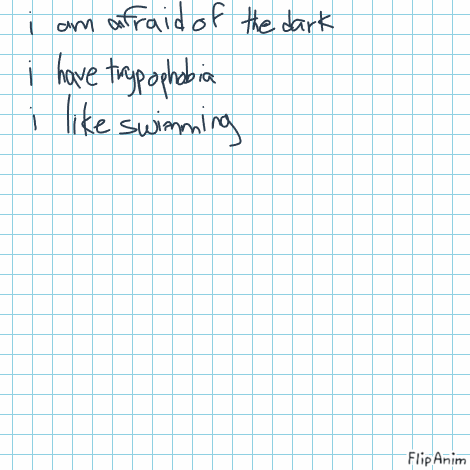 i am afraid of the dark
i have trypophobia
i like swimming
FlipAnim